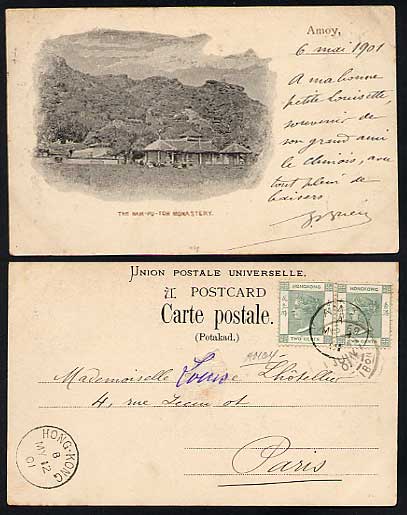 Amoy,
6 mai 1901
A ma bonne
petite Louisette,
souvenir de
son grand ami
le chinois, avec
tout plein de
baisers
THE NAM-PU-TOH MONASTERY.
UNION POSTALE UNIVERSELLE.
POSTCARD
Carte postale.
(Potakad.)
HONGKONG
HONGKONG
TWO CENTS
TWO CENTS
AMOY
Mademoiselle Louise Lhôtellier
4, rue
Paris
HONG-KONG
B
MY 12
01